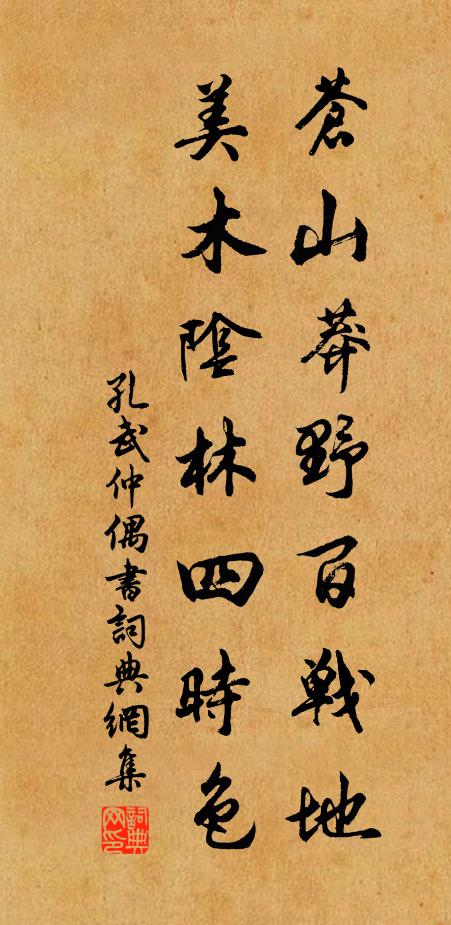 蒼山莽野百戰地
美木陰林四時色
孔武仲偶書詞典網集
詞典
网印